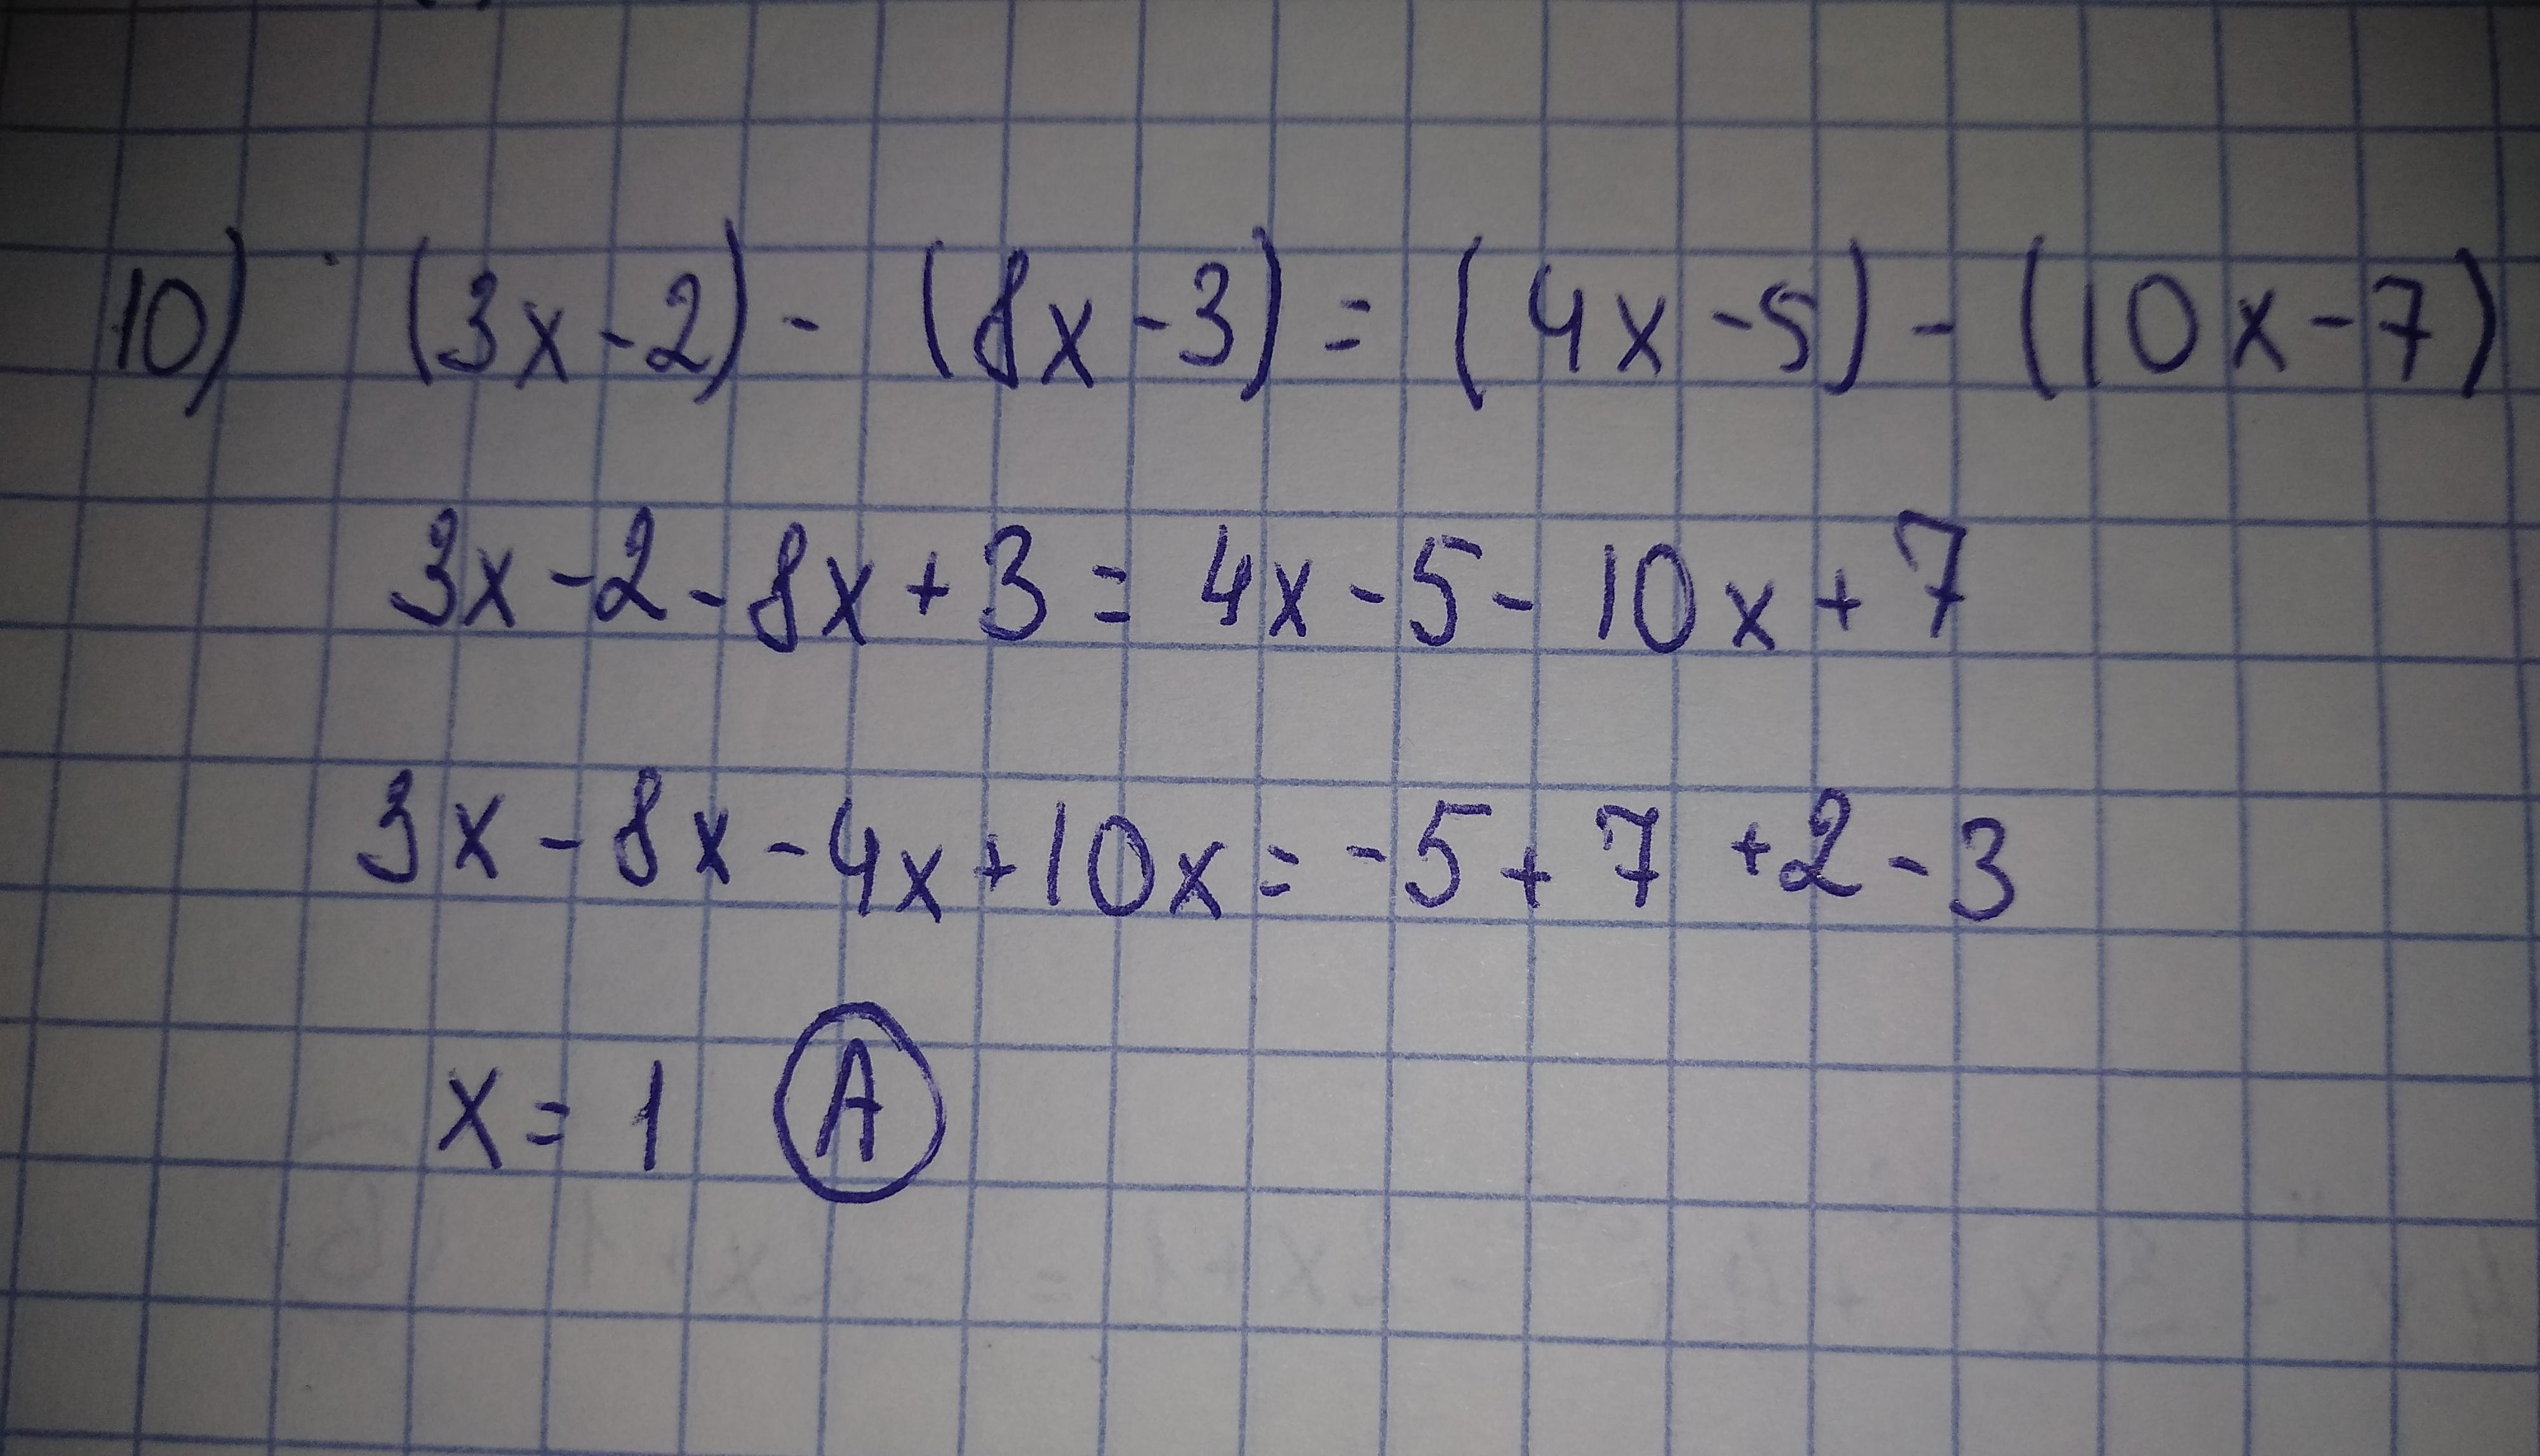 10) (3x-2) - (8x-3) = (4x-5) - (10x-7)
3x-2-8x+3 = 4x-5-10x+7
3x-8x-4x+10x = -5+7+2-3
x = 1 A